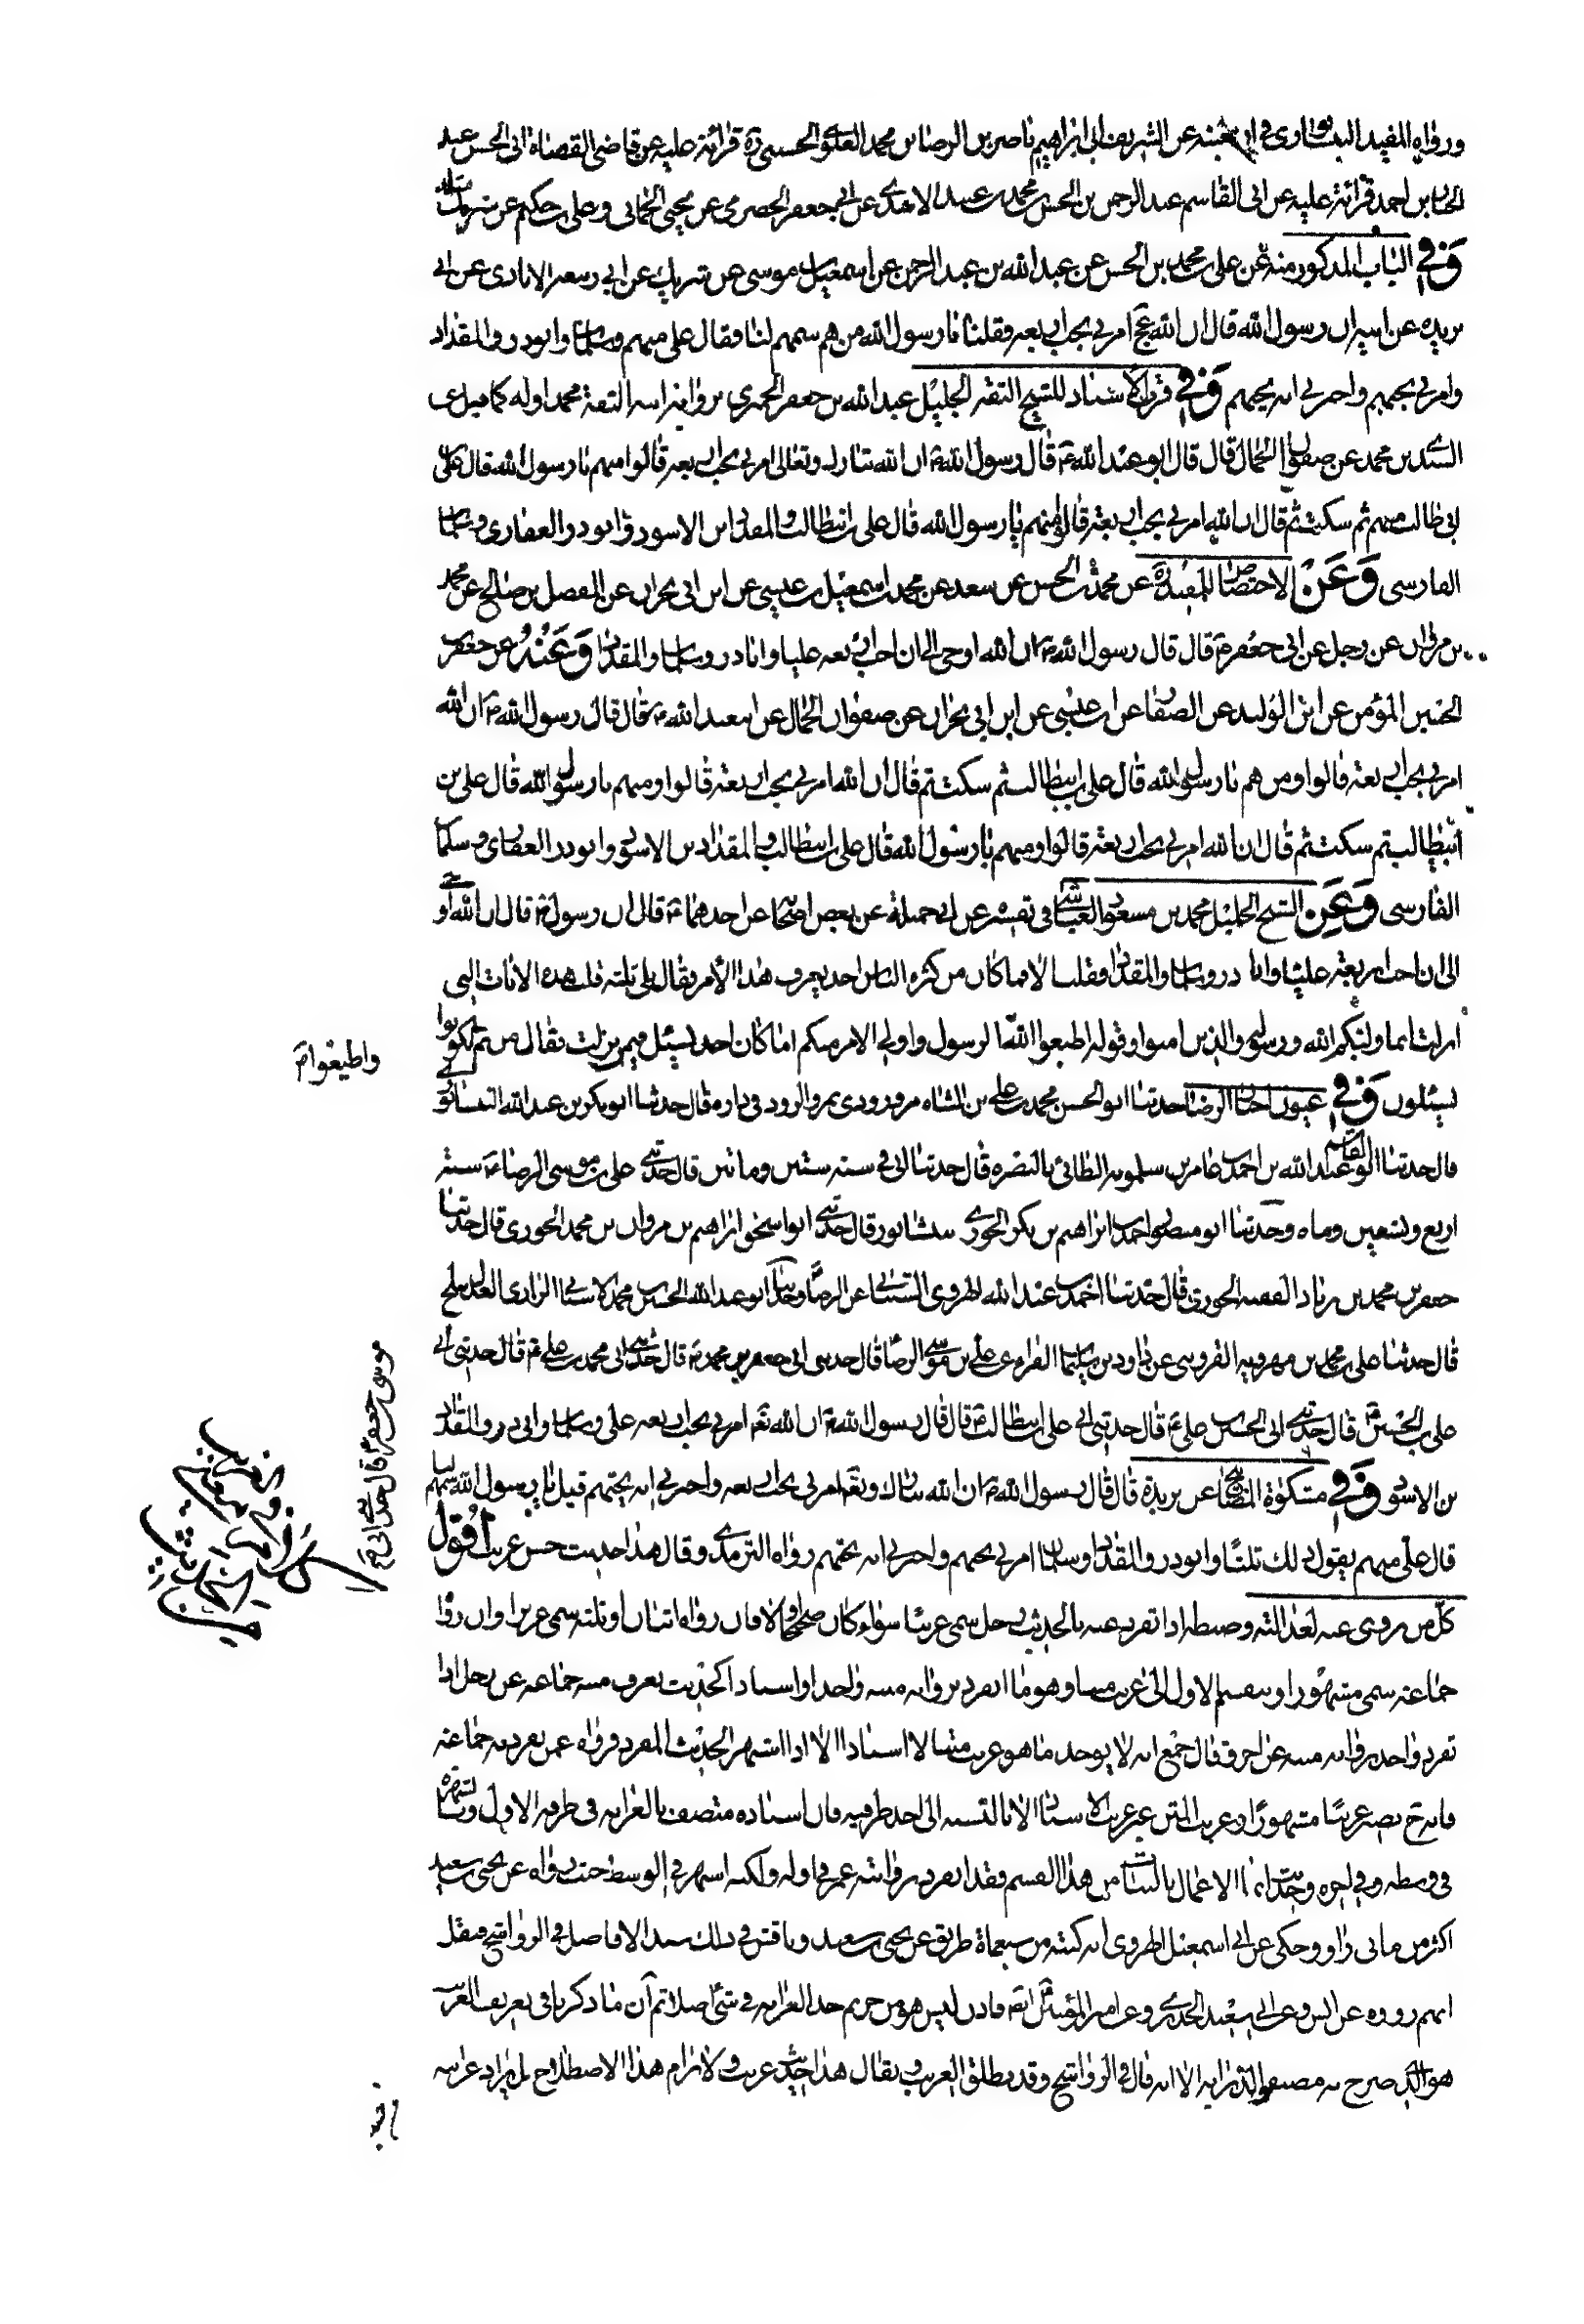 ورواه المفيد النيسابوري في اربعينه عن الشريف ابي ابراهيم ناصر بن الرضا بن محمد العلوي الحسيني ره قرائة عليه عن قاضي القضاة ابي الحسن عبد
الجبار بن احمد قرائة عليه عن ابي القاسم عبد الرحمن بن الحسن بن محمد بن عبيد الاسدي عن ابي جعفر الحضرمي عن يحيى الحماني وعلي بن حكيم عن شريك
وفي الباب المذكور منه عن علي بن محمد بن الحسن عن عبد الله بن عبد الرحمن عن اسمعيل بن موسى عن شريك عن ابي ربيعة الايادي عن ابن
بريده عن ابيه ان رسول الله قال ان الله عج امرني بحب اربعة فقلنا يا رسول الله من هم سمهم لنا فقال علي منهم وسلمان وابو ذر والمقداد
وامرني بحبهم واخبرني انه يحبهم وفي قرب الاسناد للشيخ الثقة الجليل عبد الله بن جعفر الحميري برواية ابنه الثقة محمد اوله كما قيل عن
السندي بن محمد عن صفوان الجمال قال قال ابو عبد الله ع قال رسول الله ص ان الله تبارك وتعالى امرني بحب اربعة قالوا منهم يا رسول الله قال علي بن
ابي طالب منهم ثم سكت ثم قال ان الله امرني بحب اربعة قالوا منهم يا رسول الله قال علي بن ابيطالب والمقداد بن الاسود وابو ذر الغفاري وسلمان
الفارسي وعن الاختصاص للمفيد ره عن محمد بن الحسن عن سعد عن محمد بن اسمعيل بن عيسى عن ابن ابي نجران عن المفضل بن صالح عن محمد
بن مروان عن رجل عن ابي جعفر ع قال قال رسول الله ص ان الله اوحى الي ان احب اربعة عليا وابا ذر وسلمان والمقداد وعنه عن جعفر بن
الحسين المؤمن عن ابن الوليد عن الصفار عن ابن عيسى عن ابن ابي نجران عن صفوان الجمال عن ابيعبد الله ع قال قال رسول الله ص ان الله
امرني بحب اربعة قالوا ومن هم يا رسول الله قال علي بن ابيطالب ثم سكت ثم قال ان الله امرني بحب اربعة قالوا ومنهم يا رسول الله قال علي بن
ابيطالب ثم سكت ثم قال ان الله امرني بحب اربعة قالوا ومنهم يا رسول الله قال علي بن ابيطالب والمقداد بن الاسود وابو ذر الغفاري وسلمان
الفارسي وعن الشيخ الجليل محمد بن مسعود العياشي في تفسيره عن ابي جميلة عن بعض اصحابنا عن احدهما ع قال ان رسول ص قال ان الله اوحى
الي ان احب اربعة عليا وابا ذر وسلمان والمقداد فقلت الا فما كان من كثرة الناس احد يعرف هذا الأمر فقال بلى ثلثه قلت هذه الايات التي
انزلت انما وليكم الله ورسوله والذين امنوا وقوله اطيعوا الله الرسول واولي الامر منكم اما كان احد يسئل فيمن نزلت فقال من ثم لم يكونوا
واطيعوا م
يسئلون وفي عيون اخبار الرضا حدثنا ابو الحسن محمد بن علي بن الشاه مرورودي بمروالرود في داره قال حدثنا ابو بكر بن عبد الله النيسابوري
قال حدثنا ابو القاسم عبد الله بن احمد بن عامر بن سلمويه الطائي بالبصره قال حدثنا ابي في سنة ستين وماتين قال حدثني علي بن موسى الرضا ع سنة
اربع وتسعين وماه وحدثنا ابو منصور احمد بن ابراهيم بن بكر الخوري بنيشابور قال حدثني ابو اسحق ابراهيم بن مروان بن محمد الخوري قال حدثنا
جعفر بن محمد بن زياد الفقيه الخوري قال حدثنا احمد بن عبد الله الهروي الشيباني عن الرضا وحدثنا ابو عبد الله الحسين بن محمد الاشناني الرازي العدل ببلخ
قال حدثنا علي بن محمد بن مهرويه القزويني عن داود بن سليمان الفراء عن علي بن موسى الرضا قال حدثني ابي جعفر بن محمد ع قال حدثني ابي محمد بن علي ع قال حدثني ابي
موسى بن جعفر ع قال حدثني ابي م
علي بن الحسين ع قال حدثني ابي الحسين بن علي ع قال حدثني ابي علي بن ابيطالب ع قال قال رسول الله ص ان الله تعه امرني بحب اربعة علي وسلمان وابي ذر والمقداد
بن الاسود وفي مشكوة المصابيح عن بريدة قال قال رسول الله ص ان الله تبارك وتعه امرني بحب اربعه واخبرني انه يحبهم قيل يا رسول الله سمهم لنا
قال علي منهم يقول ذلك ثلثا وابو ذر والمقداد وسلمان امرني بحبهم واخبرني انه يحبهم رواه الترمذي وقال هذا حديث حسن غريب اقول
كل من يروى عنه لعدالته وضبطه اذا تفرد عنه بالحديث رجل سمي غريبا سواء كان صحيحا ام لا فان رواه اثنان او ثلثه سمي عزيزا وان رواه
جماعة سمي مشهورا وينقسم الاول الى غريب متنا وهو ما انفرد بروايه متنه واحد او اسنادا كحديث يعرف متنه جماعه عن رجل اذا
تفرد واحد بروايته متنه عن اخر وقال جمع انه لا يوجد ما هو غريب متنا لا اسنادا الا اذا اشتهر الحديث المفرد فرواه عمن تفرد به جماعة
فانه ح يصير غريبا مشهورا وغريب المتن غير غريب الاسناد الا بالنسبه الى احد طرفيه فان اسناده متصف بالغرابه في طرفه الاول وبالشهرة
في وسطه وفي اخره وحديث انما الاعمال بالنيات من هذا القسم فقد انفرد بروايته عمر في اوله ولكنه اشتهر في الوسط حيث رواه عن يحيى بن سعيد
اكثر من مائتي راو وحكي عن ابي اسمعيل الهروي انه كتبه من سبعماة طريق عن يحيى بن سعيد وناقش في ذلك سيد الافاضل في الرواشح فنقل
انهم رووه عن انس وعن ابي سعيد الخدري وعن امير المؤمنين ايضه فاذن ليس هو من حريم حد الغرابه في شئ اصلا ثم ان ما ذكرنا في تعريف الغريب
هو الذي صرح به مصنفوا الدرايه الا انه قال في الرواشح وقد يطلق الغريب ويقال هذا حديث غريب ولا يرام هذا الاصطلاح بل يراد غرابته